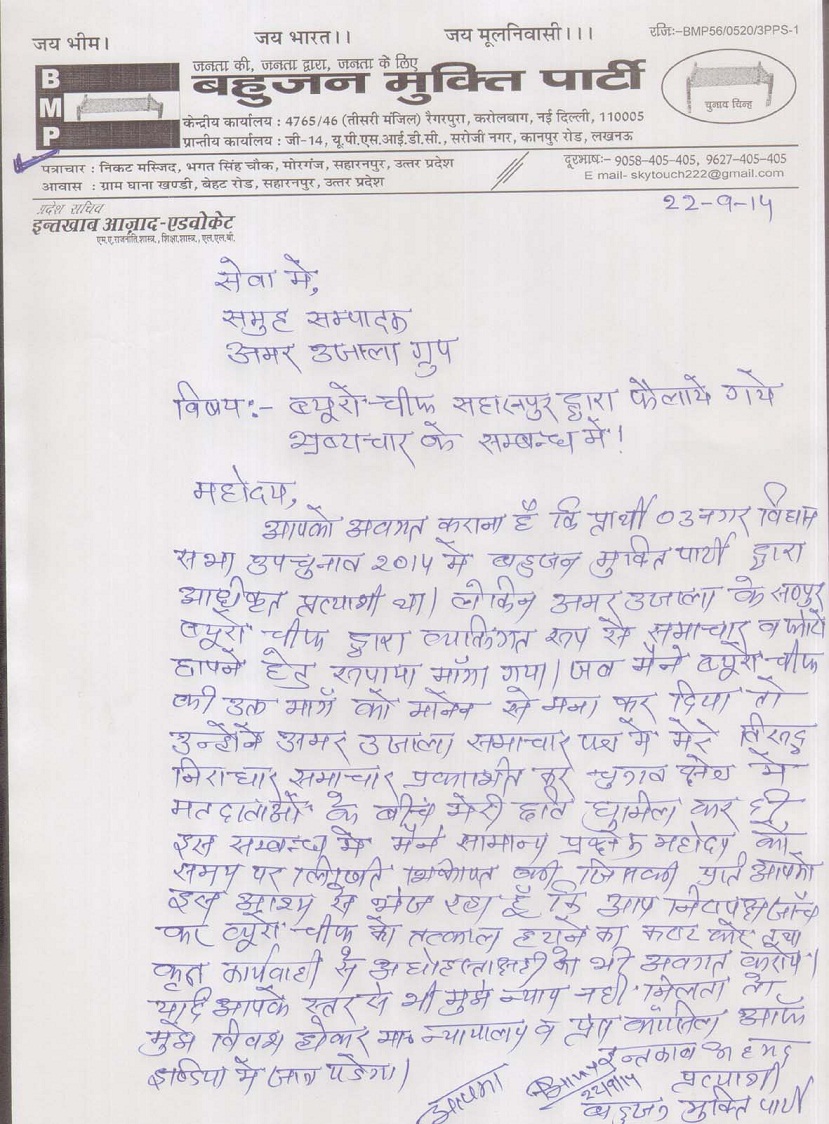 जय भीम।
जय भारत।।
जय मूलनिवासी।।।
रजि:–BMP56/0520/3PPS-1
BMP
जनता की, जनता द्वारा, जनता के लिए
बहुजन मुक्ति पार्टी
चुनाव चिन्ह
केन्द्रीय कार्यालय : 4765/46 (तीसरी मंजिल) रैगरपुरा, करोलबाग, नई दिल्ली, 110005
प्रान्तीय कार्यालय : जी-14, यू.पी.एस.आई.डी.सी., सरोजी नगर, कानपुर रोड, लखनऊ
पत्राचार : निकट मस्जिद, भगत सिंह चौक, मोरगंज, सहारनपुर, उत्तर प्रदेश
आवास : ग्राम घाना खण्डी, बेहट रोड, सहारनपुर, उत्तर प्रदेश
दूरभाष:– 9058-405-405, 9627-405-405
E mail- skytouch222@gmail.com
प्रदेश सचिव
इन्तखाब आज़ाद-एडवोकेट
एम.ए.राजनीति शास्त्र., शिक्षा शास्त्र., एल.एल.बी.
22-9-14
सेवा में,
समुह सम्पादक
अमर उजाला ग्रुप
विषय:- ब्यूरो-चीफ सहारनपुर द्वारा फैलाये गये
भ्रष्टाचार के सम्बन्ध में!
महोदय,
आपको अवगत कराना है कि प्रार्थी 03 नगर विधान
सभा उपचुनाव 2014 में बहुजन मुक्ति पार्टी द्वारा
अधिकृत प्रत्याशी था। लेकिन अमर उजाला के स०पुर
ब्यूरो चीफ द्वारा व्यक्तिगत रूप से समाचार व फोटो
छापने हेतु रूपाया माँगा गया। जब मैंने ब्यूरो-चीफ
की उक्त माँग को मानने से मना कर दिया तो
उन्होंने अमर उजाला समाचार पत्र में मेरे विरुद्ध
निराधार समाचार प्रकाशित कर चुनाव क्षेत्र में
मतदाताओं के बीच मेरी छवि धुमिल कर दी
इस सम्बन्ध में मैंने सामान्य प्रेक्षक महोदय को
समय पर लिखित शिकायत की जिसकी प्रति आपको
इस आशय से भेज रहा हूँ कि आप निष्पक्ष जाँच
कर ब्यूरो-चीफ को तत्काल हटाने का कष्ट करे तथा
कृत कार्यवाही से अधोहस्ताक्षरी को भी अवगत कराये।
यदि आपके स्तर से भी मुझे न्याय नही मिलता तो
मुझे विवश होकर मा० न्यायालय व प्रेस काउंसिल आफ
इण्डिया में जाना पडेगा।
इन्तखाब अहमद
22/9/14
प्रत्याशी
बहुजन मुक्ति पार्टी